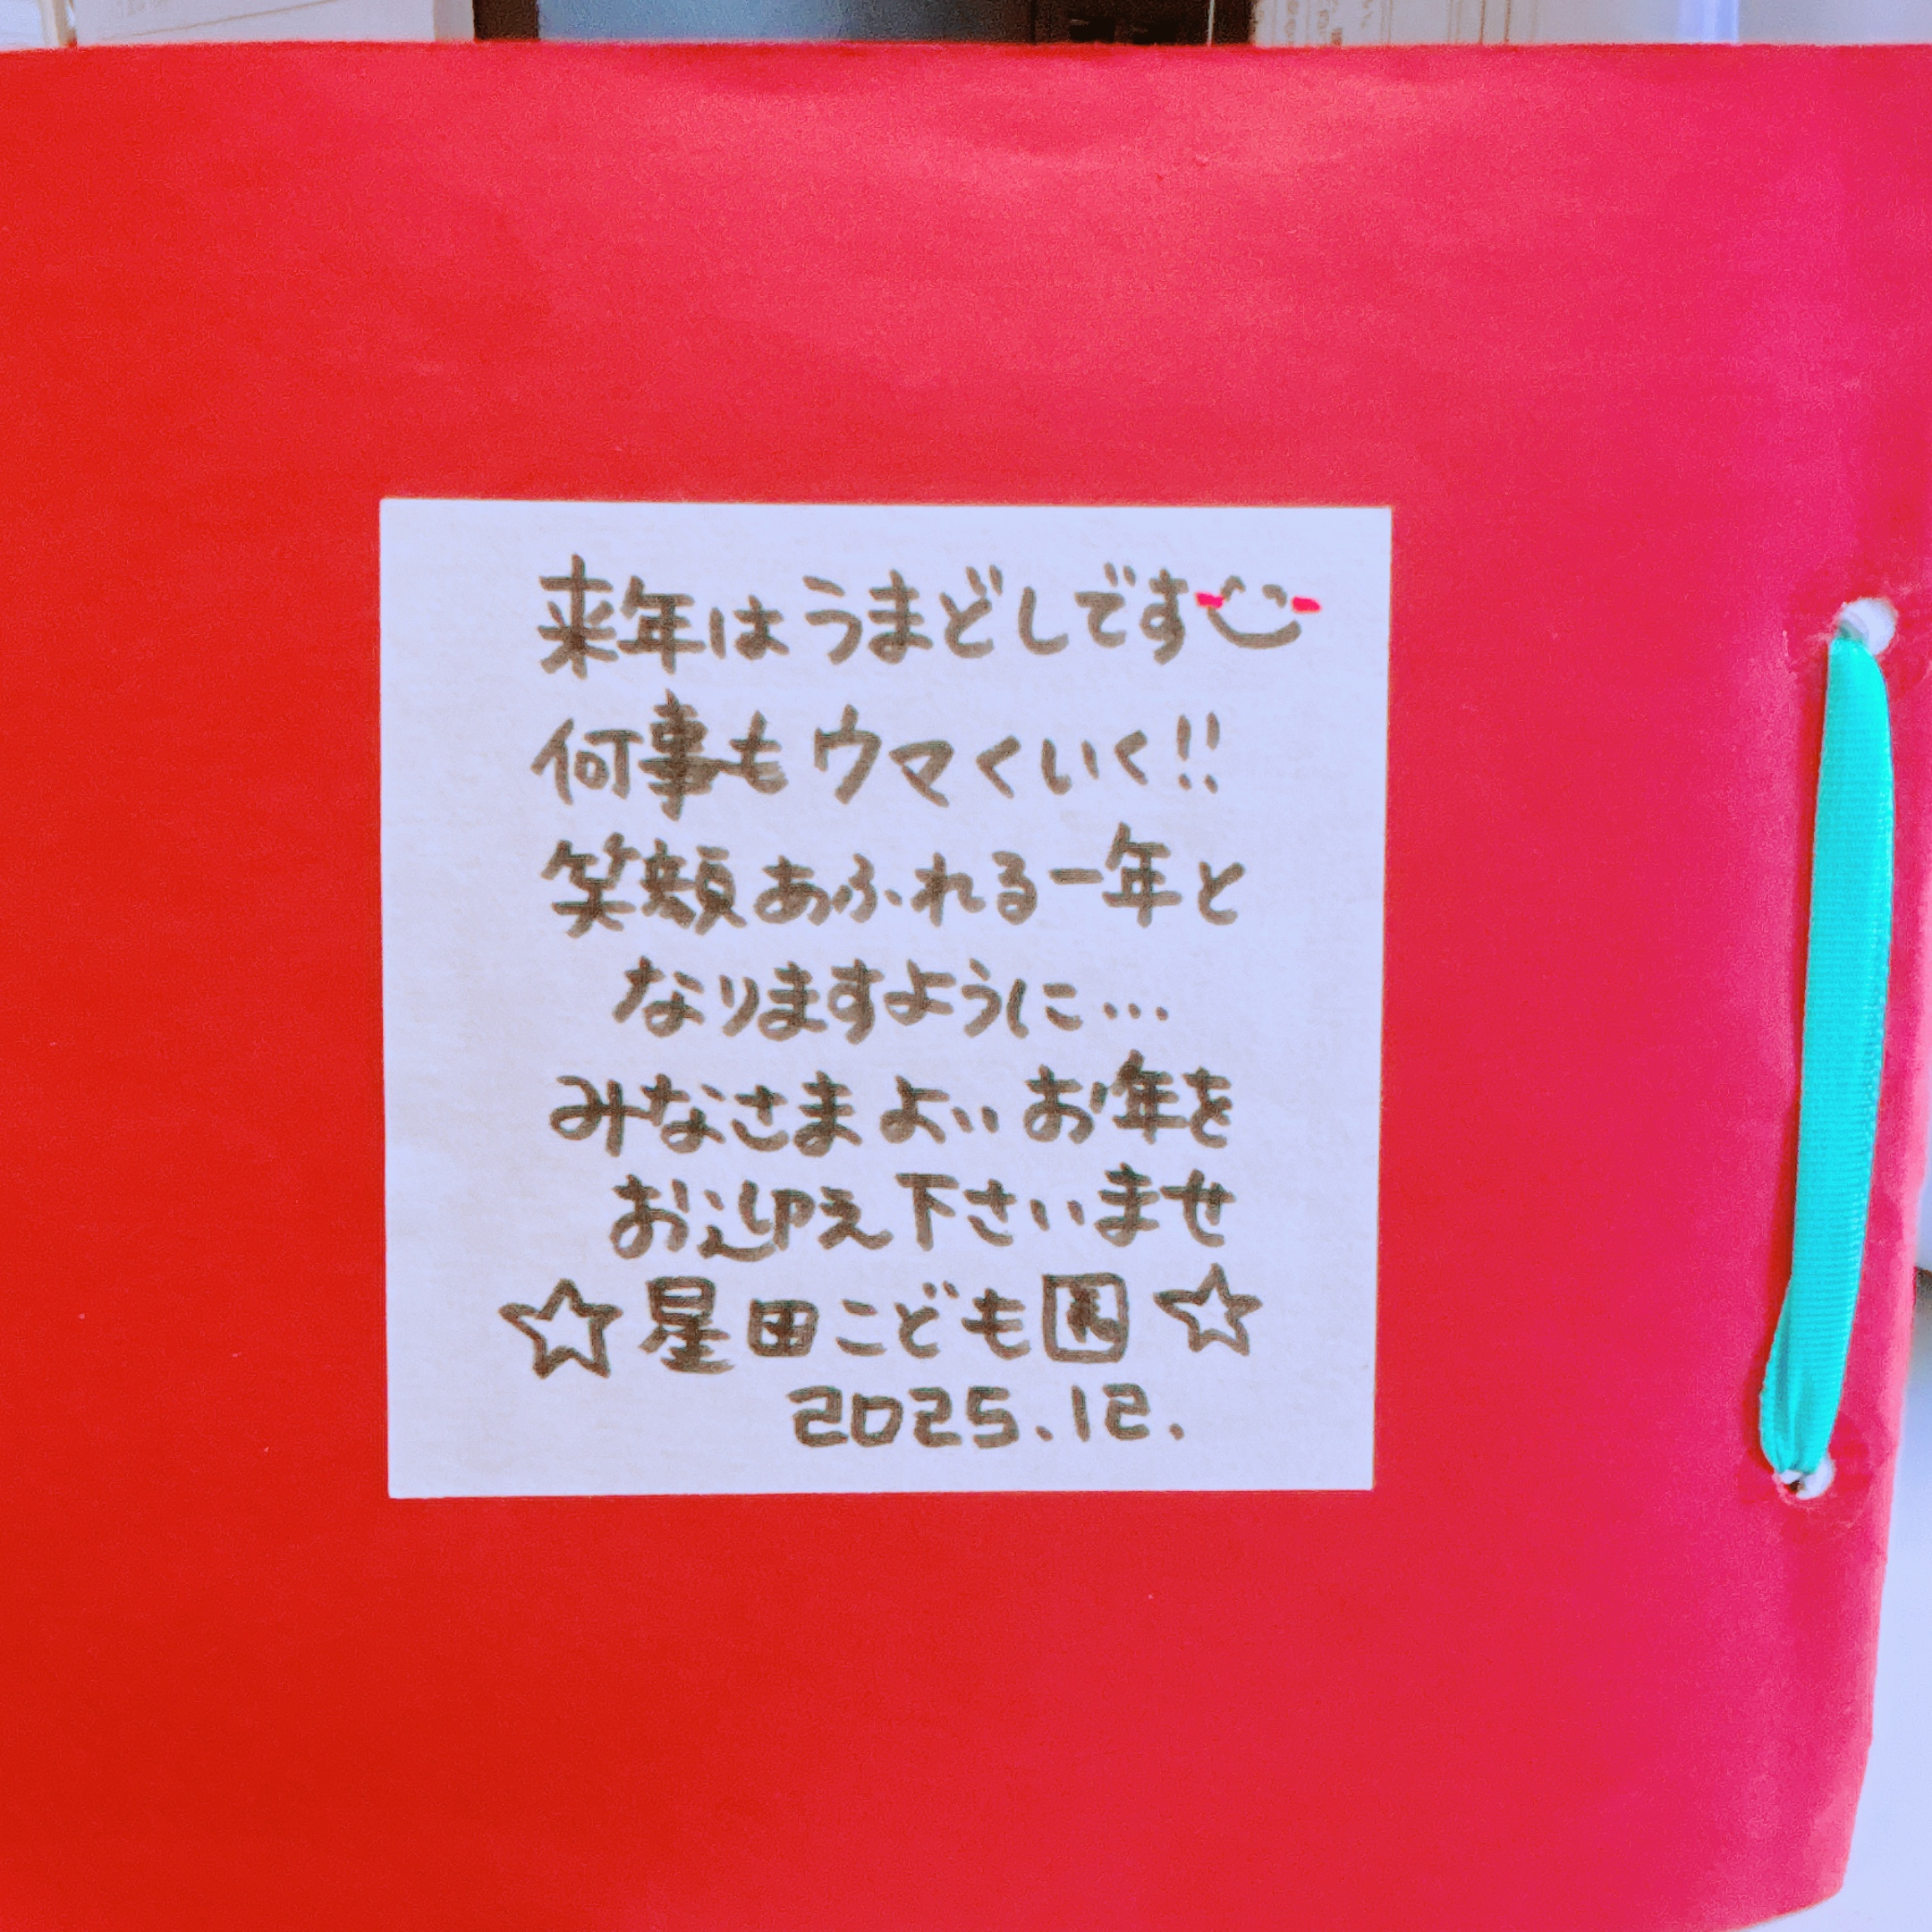 来年はうまどしです
何事もウマくいく!!
笑顔あふれる一年と
なりますように…
みなさまよいお年を
お迎え下さいませ
☆星田こども園☆
2025.12.